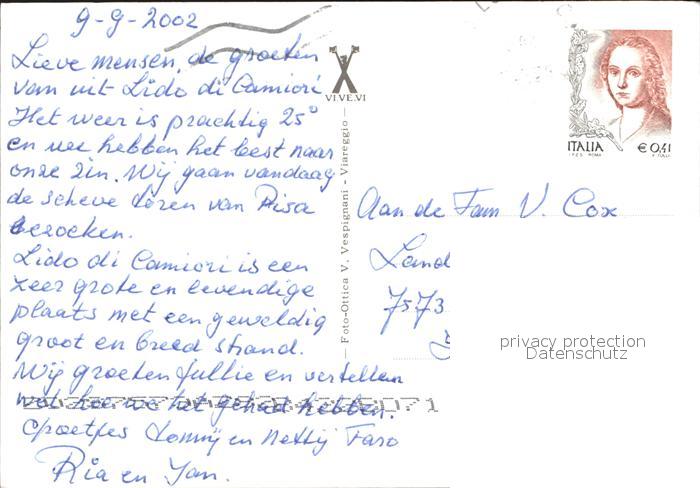 9-9-2002
Lieve mensen, de groeten
van uit Lido di Camiori
Het weer is prachtig 25°
en we hebben het best naar
onze zin. Wij gaan vandaag
de scheve toren van Pisa
bezoeken.
Lido di Camiori is een
zeer grote en levendige
plaats met een geweldig
groot en breed strand.
Wij groeten jullie en vertellen
wel hoe we het gehad hebben.
Groetjes en Nettij Faro
Ria en Jan.
VI.VE.VI
Foto-Ottica V. Vespignani - Viareggio
ITALIA € 0,41
I.P.Z.S. ROMA
Aan de Fam V. Cox
Land
7573
privacy protection
Datenschutz